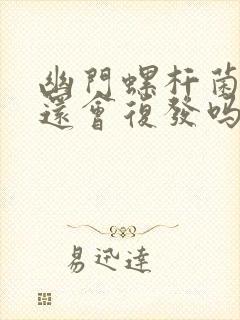 幽門螺杆菌
還會復發嗎
易迅達